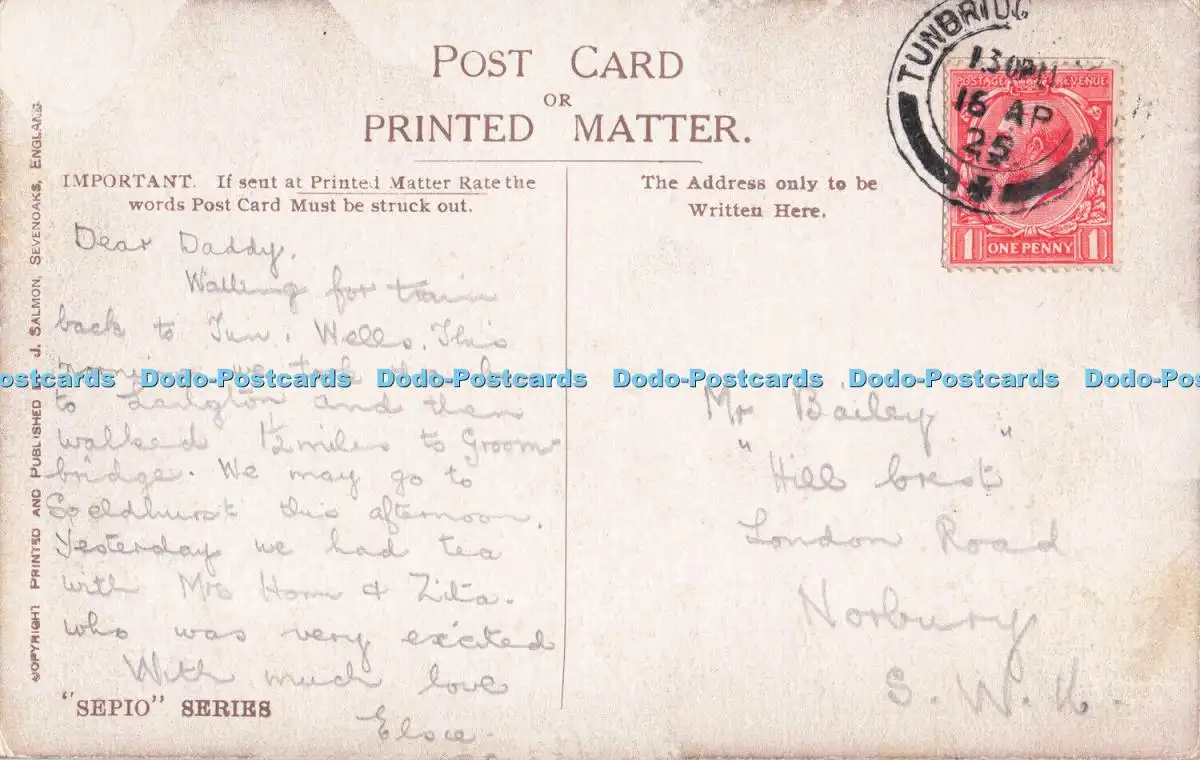 POST CARD
OR
PRINTED MATTER.
IMPORTANT. If sent at Printed Matter Rate the
words Post Card Must be struck out.
The Address only to be
Written Here.
TUNBRIDG
130PM
16 AP
25
POSTAGE REVENUE
1 ONE PENNY 1
COPYRIGHT PRINTED AND PUBLISHED BY J. SALMON, SEVENOAKS, ENGLAND
Dear Daddy,
Waiting for train
back to Tun. Wells. This
we took
to and then
walked 1½ miles to Groom
bridge. We may go to
Speldhurst this afternoon.
Yesterday we had tea
with Mrs & Zita.
who was very excited
With much love
"SEPIO" SERIES
Mr Bailey
"Hill Crest"
London Road
Norbury
S. W.
Dodo-Postcards Dodo-Postcards Dodo-Postcards Dodo-Postcards Dodo-Postcards